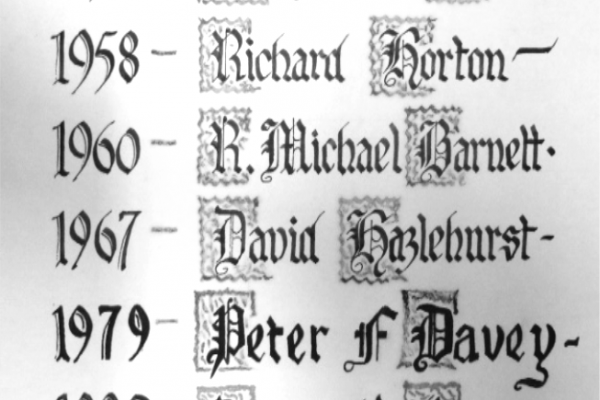 1958 – Richard Horton –
1960 – R. Michael Barnett.
1967 – David Hazlehurst -
1979 – Peter F Davey -